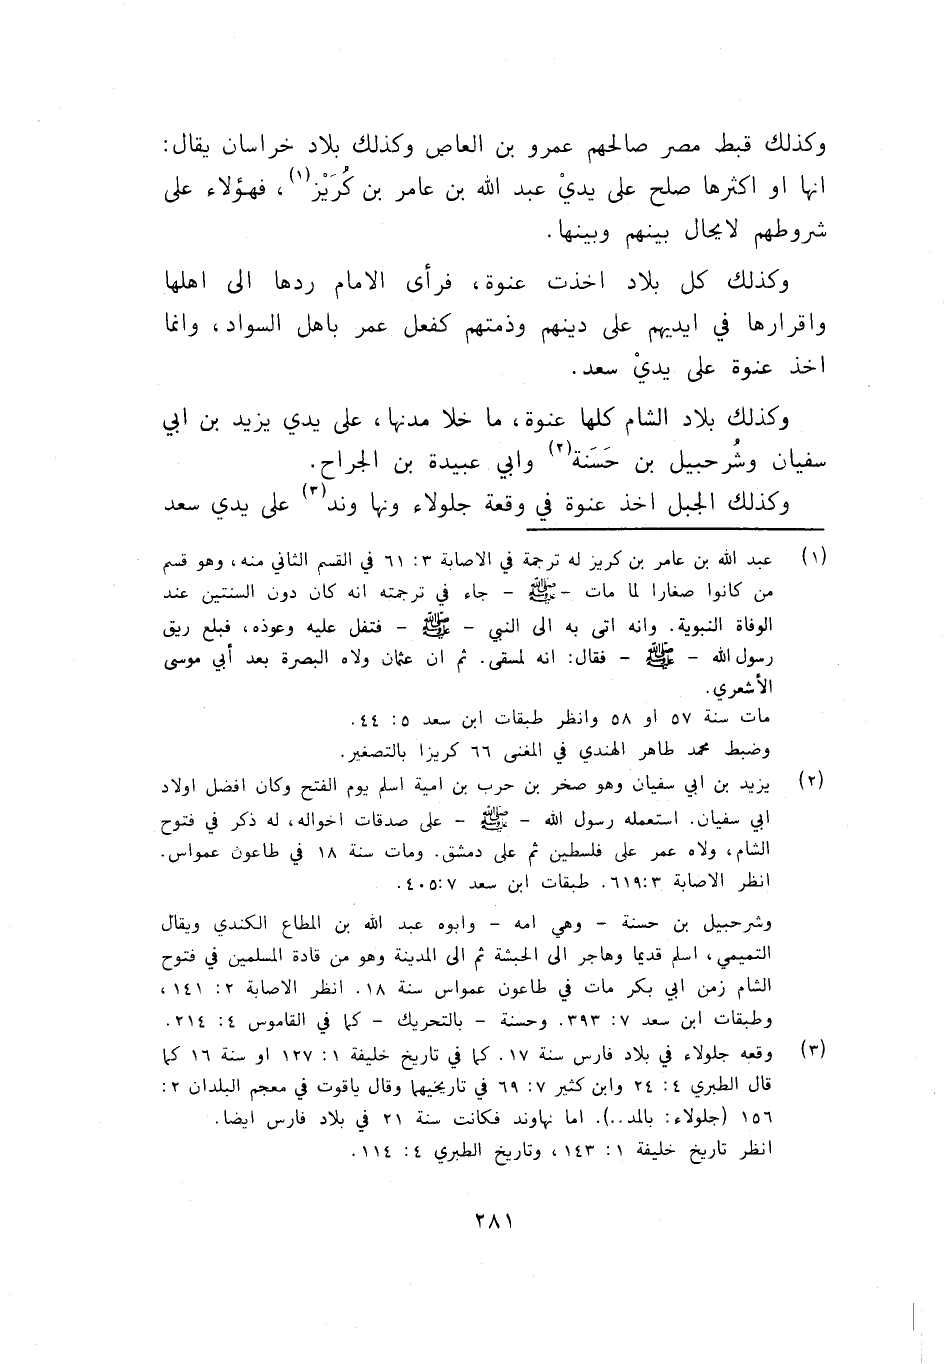 وكذلك قبط مصر صالحهم عمرو بن العاص وكذلك بلاد خراسان يقال:
انها او اكثرها صلح على يديْ عبد الله بن عامر بن كُرَيْز(١)، فهؤلاء على
شروطهم لايحال بينهم وبينها.
وكذلك كل بلاد اخذت عنوة، فرأى الامام ردها الى اهلها
واقرارها في ايديهم على دينهم وذمتهم كفعل عمر باهل السواد، وانما
اخذ عنوة على يديْ سعد.
وكذلك بلاد الشام كلها عنوة، ما خلا مدنها، على يدي يزيد بن ابي
سفيان وشُرحبيل بن حَسَنة(٢) وابي عبيدة بن الجراح.
وكذلك الجبل اخذ عنوة في وقعة جلولاء ونها وند(٣) على يدي سعد
(١) عبد الله بن عامر بن كريز له ترجمة في الاصابة ٣: ٦١ في القسم الثاني منه، وهو قسم
من كانوا صغارا لما مات -ﷺ- جاء في ترجمته انه كان دون السنتين عند
الوفاة النبوية. وانه اتى به الى النبي - ﷺ - فتفل عليه وعوذه، فبلع ريق
رسول الله - ﷺ - فقال: انه لمسقى. ثم ان عثمان ولاه البصرة بعد أبي موسى
الأشعري.
مات سنة ٥٧ او ٥٨ وانظر طبقات ابن سعد ٥: ٤٤.
وضبط محمد طاهر الهندي في المغنى ٦٦ كريزا بالتصغير.
(٢) يزيد بن ابي سفيان وهو صخر بن حرب بن امية اسلم يوم الفتح وكان افضل اولاد
ابي سفيان. استعمله رسول الله - ﷺ - على صدقات اخواله، له ذكر في فتوح
الشام، ولاه عمر على فلسطين ثم على دمشق. ومات سنة ١٨ في طاعون عمواس.
انظر الاصابة ٦١٩:٣. طبقات ابن سعد ٤٠٥:٧.
وشرحبيل بن حسنة - وهي امه - وابوه عبد الله بن المطاع الكندي ويقال
التميمي، اسلم قديما وهاجر الى الحبشة ثم الى المدينة وهو من قادة المسلمين في فتوح
الشام زمن ابي بكر مات في طاعون عمواس سنة ١٨. انظر الاصابة ٢: ١٤١،
وطبقات ابن سعد ٧: ٣٩٣. وحسنة - بالتحريك - كما في القاموس ٤: ٢١٤.
(٣) وقعه جلولاء في بلاد فارس سنة ١٧. كما في تاريخ خليفة ١: ١٢٧ او سنة ١٦ كما
قال الطبري ٤: ٢٤ وابن كثير ٧: ٦٩ في تاريخيهما وقال ياقوت في معجم البلدان ٢:
١٥٦ (جلولاء: بالمد..). اما نهاوند فكانت سنة ٢١ في بلاد فارس ايضا.
انظر تاريخ خليفة ١: ١٤٣، وتاريخ الطبري ٤: ١١٤.
٢٨١